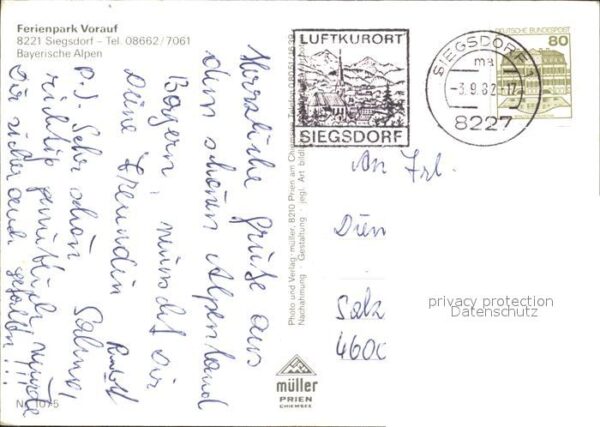 Ferienpark Vorauf
8221 Siegsdorf - Tel. 08662/7061
Bayerische Alpen
Herzliche Grüße aus
dem schönen Alpenland
Bayern, wünscht Dir
Deine Freundin
Sabine
Rudolf
P.S. Sehr schön
richtig gemütlich, würde
Dir sicher auch gefallen!!!
Nr. 1075
Photo und Verlag: müller, 8210 Prien am Chiemsee
Nachahmung - Gestaltung jegl. Art
müller
PRIEN
CHIEMSEE
LUFTKURORT
SIEGSDORF
SIEGSDORF 1
ma
-3.9.82-17
8227
DEUTSCHE BUNDESPOST
80
An Frl.
Salz
4600
privacy protection
Datenschutz